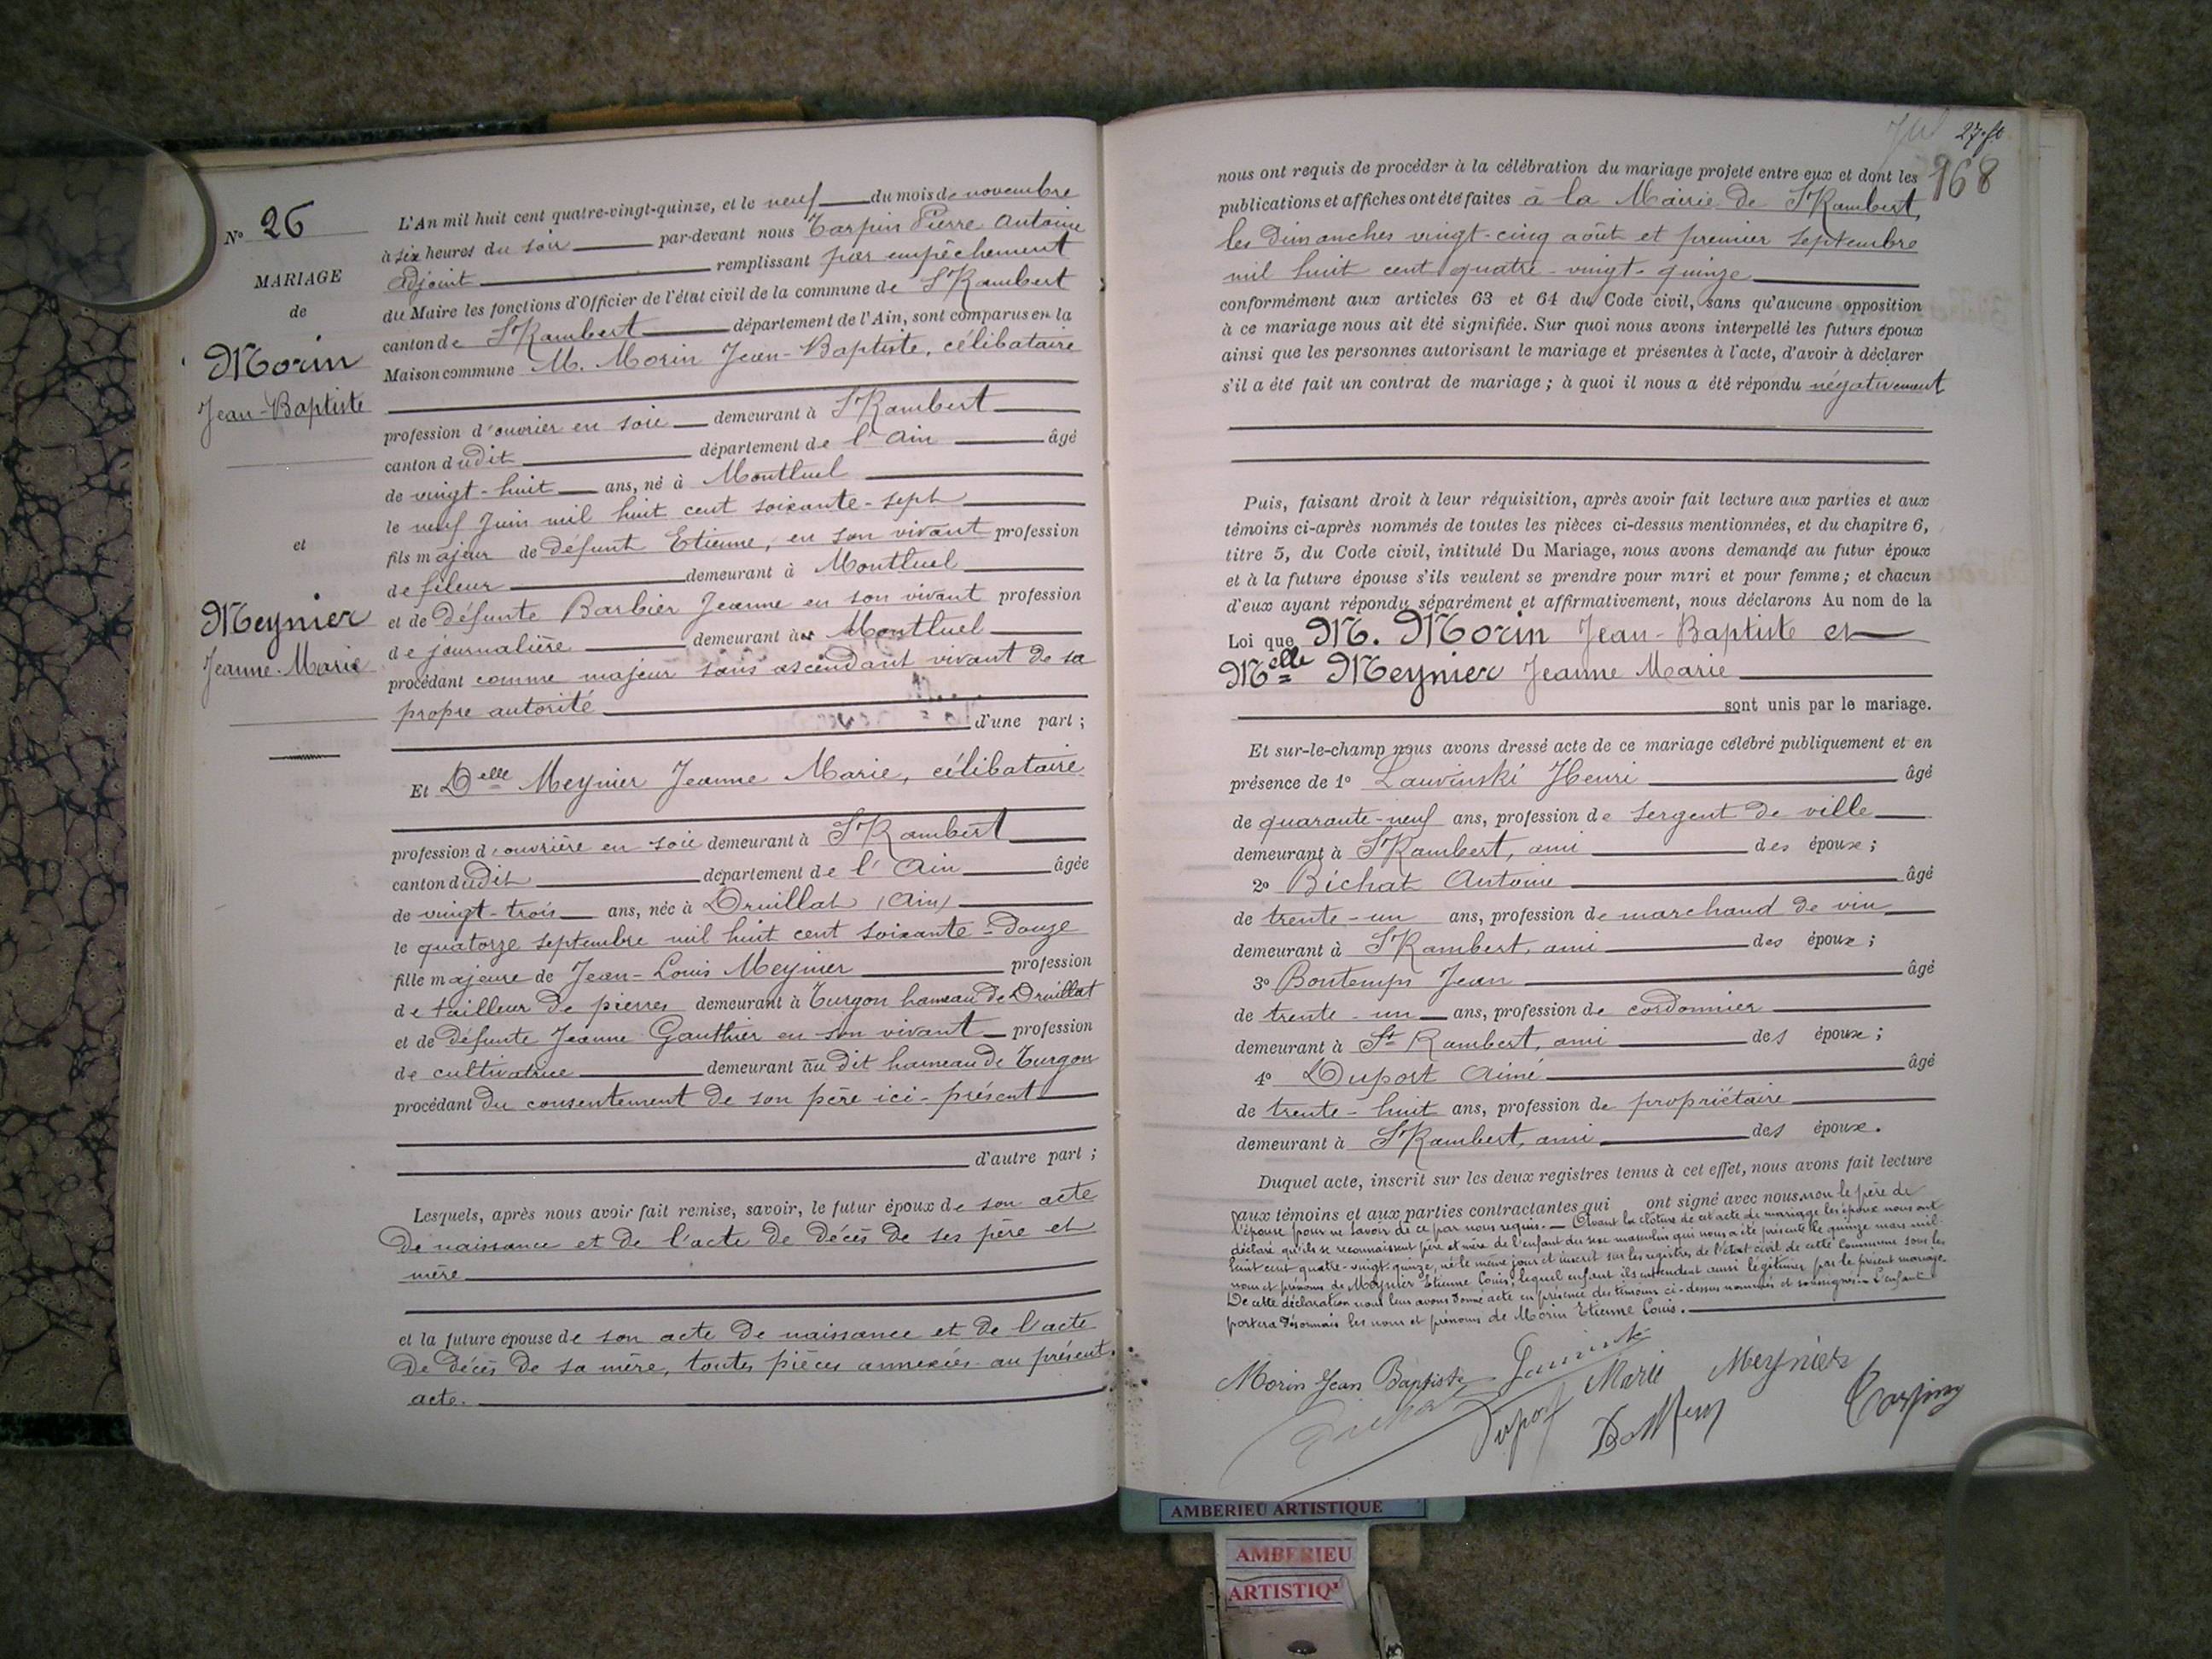 N° 26
MARIAGE
de
Morin
Jean-Baptiste
et
Meynier
Jeanne-Marie
L'An mil huit cent quatre-vingt-quinze, et le neuf du mois de novembre
à six heures du soir par-devant nous Tarpin Pierre Antoine
adjoint remplissant par empêchement
du Maire les fonctions d'Officier de l'état civil de la commune de St Rambert
canton de St Rambert département de l'Ain, sont comparus en la
Maison commune M. Morin Jean-Baptiste, célibataire
profession d'ouvrier en soie demeurant à St Rambert
canton dudit département de l'Ain âgé
de vingt-huit ans, né à Montluel
le neuf Juin mil huit cent soixante-sept
fils majeur de défunt Etienne, en son vivant profession
de fileur demeurant à Montluel
et de défunte Barbier Jeanne en son vivant profession
de journalière demeurant à Montluel
procédant comme majeur sans ascendant vivant de sa
propre autorité
d'une part ;
Et Delle Meynier Jeanne Marie, célibataire
profession d'ouvrière en soie demeurant à St Rambert
canton dudit département de l'Ain âgée
de vingt-trois ans, née à Druillat (Ain)
le quatorze septembre mil huit cent soixante-douze
fille majeure de Jean-Louis Meynier profession
de tailleur de pierres demeurant à Turgon hameau de Druillat
et de défunte Jeanne Gauthier en son vivant profession
de cultivatrice demeurant au dit hameau de Turgon
procédant du consentement de son père ici-présent
d'autre part ;
Lesquels, après nous avoir fait remise, savoir, le futur époux de son acte
de naissance et de l'acte de décès de ses père et
mère
et la future épouse de son acte de naissance et de l'acte
de décès de sa mère, toutes pièces annexées au présent
acte.
27 ft
168
nous ont requis de procéder à la célébration du mariage projeté entre eux et dont les
publications et affiches ont été faites à la Mairie de St Rambert,
les dimanches vingt-cinq août et premier septembre
mil huit cent quatre-vingt-quinze
conformément aux articles 63 et 64 du Code civil, sans qu'aucune opposition
à ce mariage nous ait été signifiée. Sur quoi nous avons interpellé les futurs époux
ainsi que les personnes autorisant le mariage et présentes à l'acte, d'avoir à déclarer
s'il a été fait un contrat de mariage ; à quoi il nous a été répondu négativement
Puis, faisant droit à leur réquisition, après avoir fait lecture aux parties et aux
témoins ci-après nommés de toutes les pièces ci-dessus mentionnées, et du chapitre 6,
titre 5, du Code civil, intitulé Du Mariage, nous avons demandé au futur époux
et à la future épouse s'ils veulent se prendre pour mari et pour femme ; et chacun
d'eux ayant répondu séparément et affirmativement, nous déclarons Au nom de la
Loi que M. Morin Jean-Baptiste et
Melle Meynier Jeanne Marie
sont unis par le mariage.
Et sur-le-champ nous avons dressé acte de ce mariage célébré publiquement et en
présence de 1° Lauvinski Henri âgé
de quarante-neuf ans, profession de sergent de ville
demeurant à St Rambert, ami des époux ;
2° Bichat Antoine âgé
de trente-un ans, profession de marchand de vin
demeurant à St Rambert, ami des époux ;
3° Bontemps Jean âgé
de trente-un ans, profession de cordonnier
demeurant à St Rambert, ami des époux ;
4° Duport Aimé âgé
de trente-huit ans, profession de propriétaire
demeurant à St Rambert, ami des époux.
Duquel acte, inscrit sur les deux registres tenus à cet effet, nous avons fait lecture
aux témoins et aux parties contractantes qui ont signé avec nous non le père de
l'épouse pour ne savoir de ce par nous requis. — Avant la clôture de cet acte de mariage les époux nous ont
déclaré qu'ils se reconnaissent père et mère de l'enfant du sexe masculin qui nous a été présenté le quinze mars mil
huit cent quatre-vingt-quinze, né le même jour et inscrit sur les registres de l'état civil de cette commune sous les
nom et prénoms de Meynier Etienne Louis, lequel enfant ils entendent aussi légitimer par le présent mariage.
De cette déclaration nous leur avons donné acte en présence des témoins ci-dessus nommés et soussignés. — L'enfant
portera désormais les nom et prénoms de Morin Etienne Louis.
Morin Jean Baptiste Marie Meynier
Duport Tarpin
AMBERIEU ARTISTIQUE
AMBERIEU
ARTISTIQ